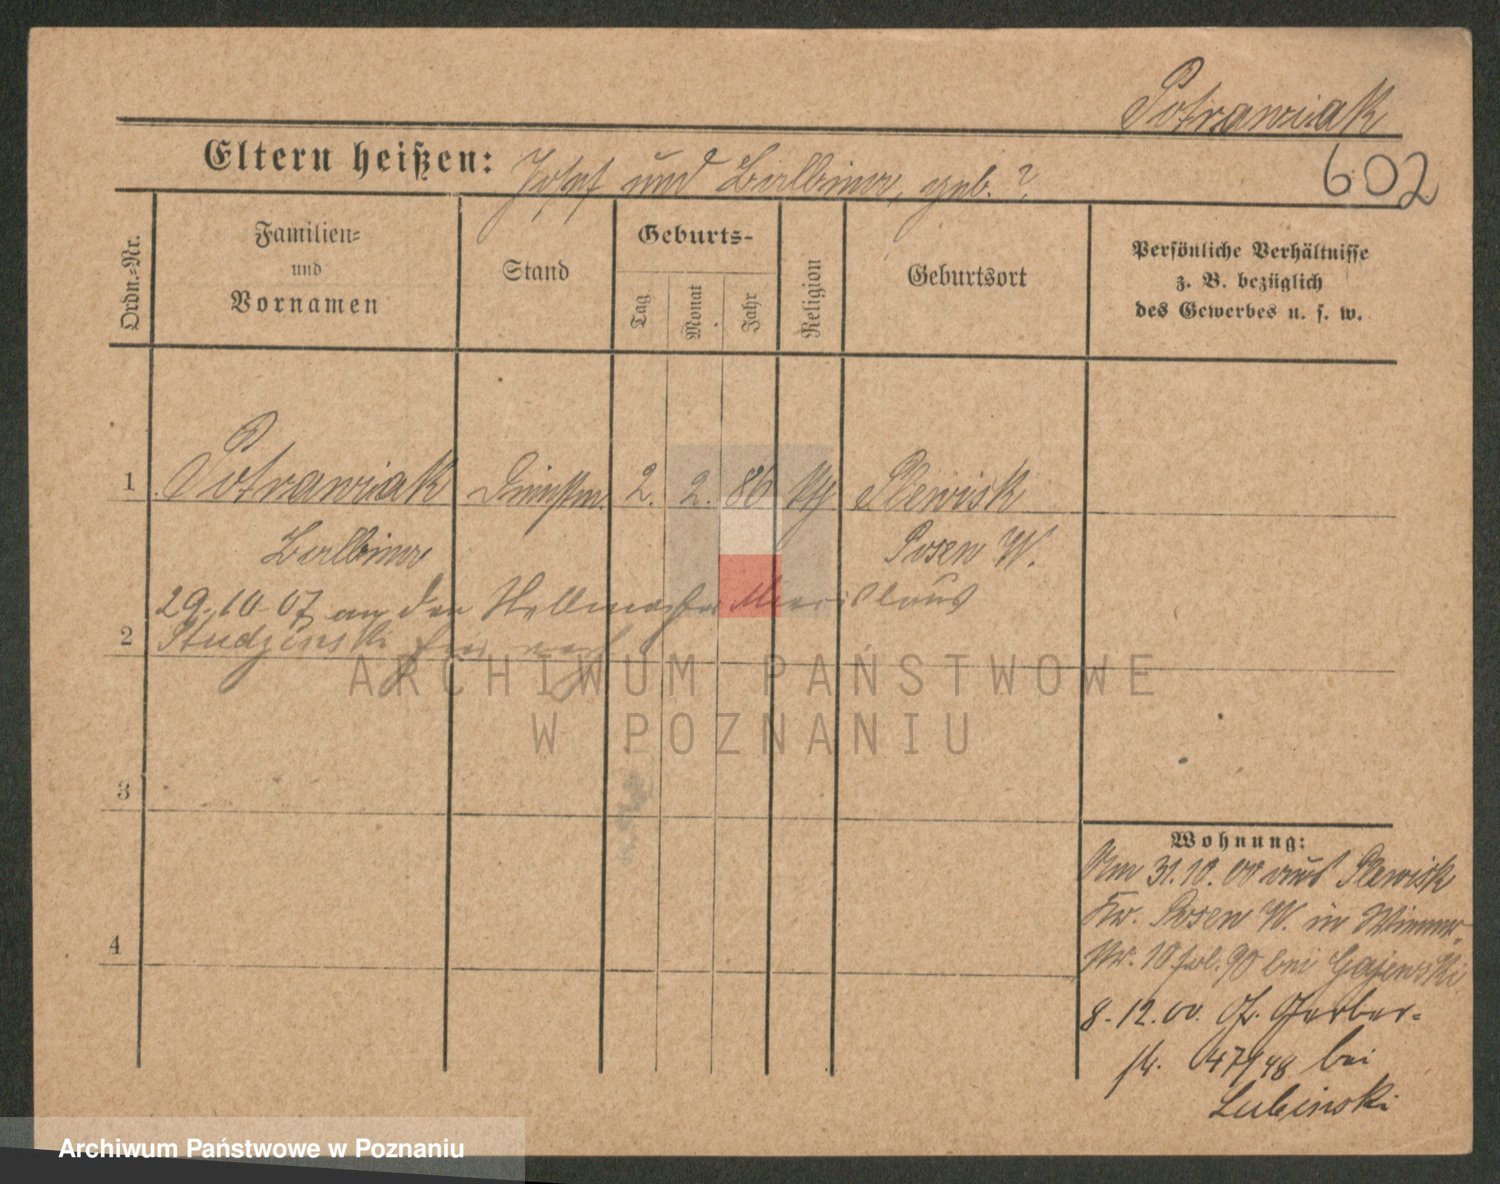 Potrawiak
Eltern heißen: Josef und Balbina, geb. ?
602
Ordn.=Nr.
Familien=
und
Vornamen
Stand
Geburts-
Tag
Monat
Jahr
Religion
Geburtsort
Persönliche Verhältnisse
z. B. bezüglich
des Gewerbes u. s. w.
1 Potrawiak 2. 2. 86 Plewisk
Balbina Posen W.
29.10.07 an den Mieceslaus
2 Studzinski
ARCHIWUM PAŃSTWOWE
W POZNANIU
3
Wohnung:
Am 31.10.00 aus Plewisk
Kr. Posen W. in
4
Nr. 10 fol. 90 bei Gajewski
8.12.00. Gr. Gerber=
str. 47/48 bei
Lubinski
Archiwum Państwowe w Poznaniu